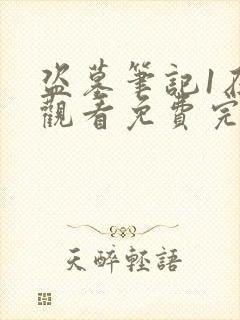 盜墓筆記1在
觀看免費完
天醉輕語